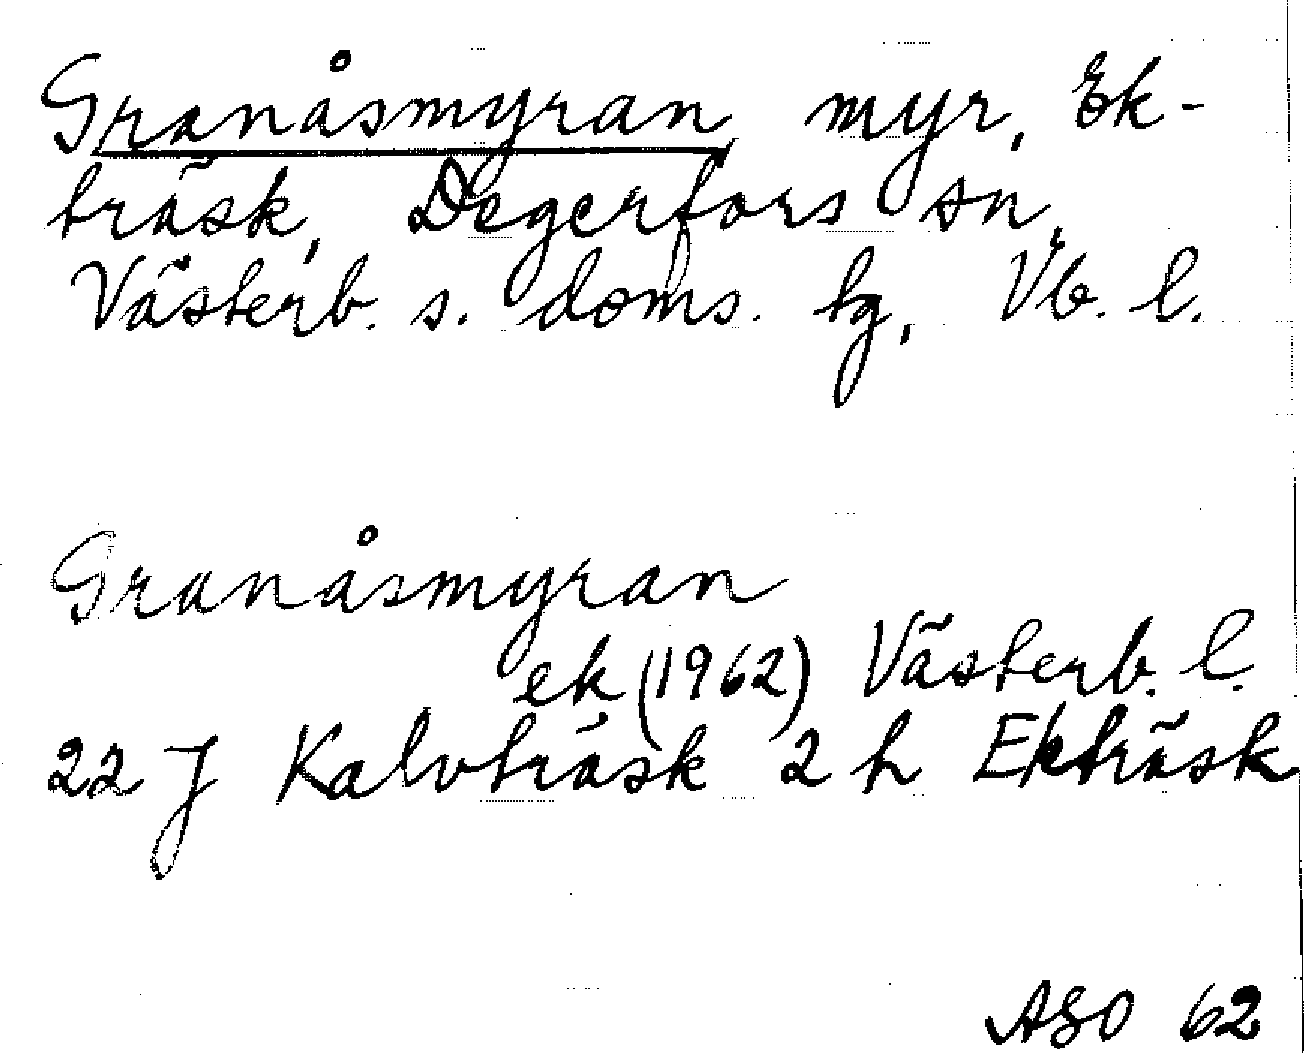 Granåsmyran myr, Ek-
träsk, Degerfors sn,
Västerb. s. doms. tg, Vb. l.
Granåsmyran
ek (1962) Västerb. l.
22 J Kalvträsk 2 h Ekträsk
ASO 62